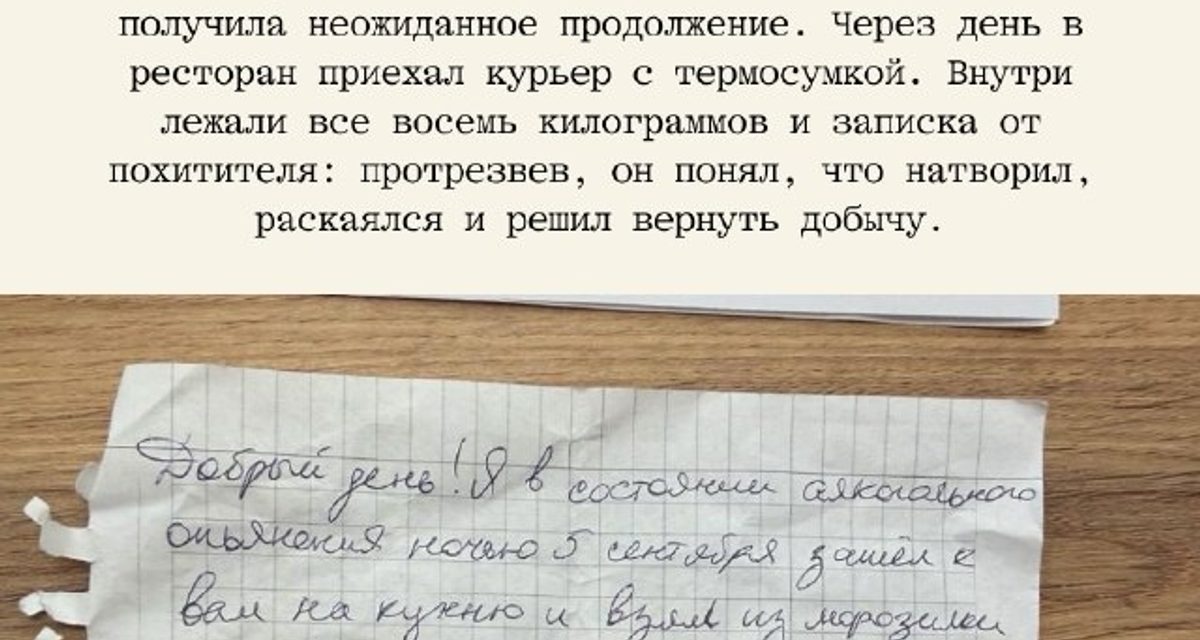 получила неожиданное продолжение. Через день в
ресторан приехал курьер с термосумкой. Внутри
лежали все восемь килограммов и записка от
похитителя: протрезвев, он понял, что натворил,
раскаялся и решил вернуть добычу.
Добрый день! Я в состоянии алкогольного
опьянения ночью 5 сентября зашёл к
вам на кухню и взял из морозилки